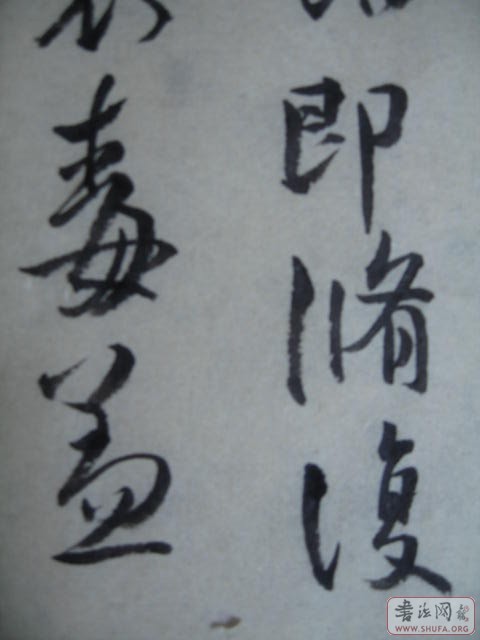 即脩復
毒益
書法网
WWW.SHUFA.ORG